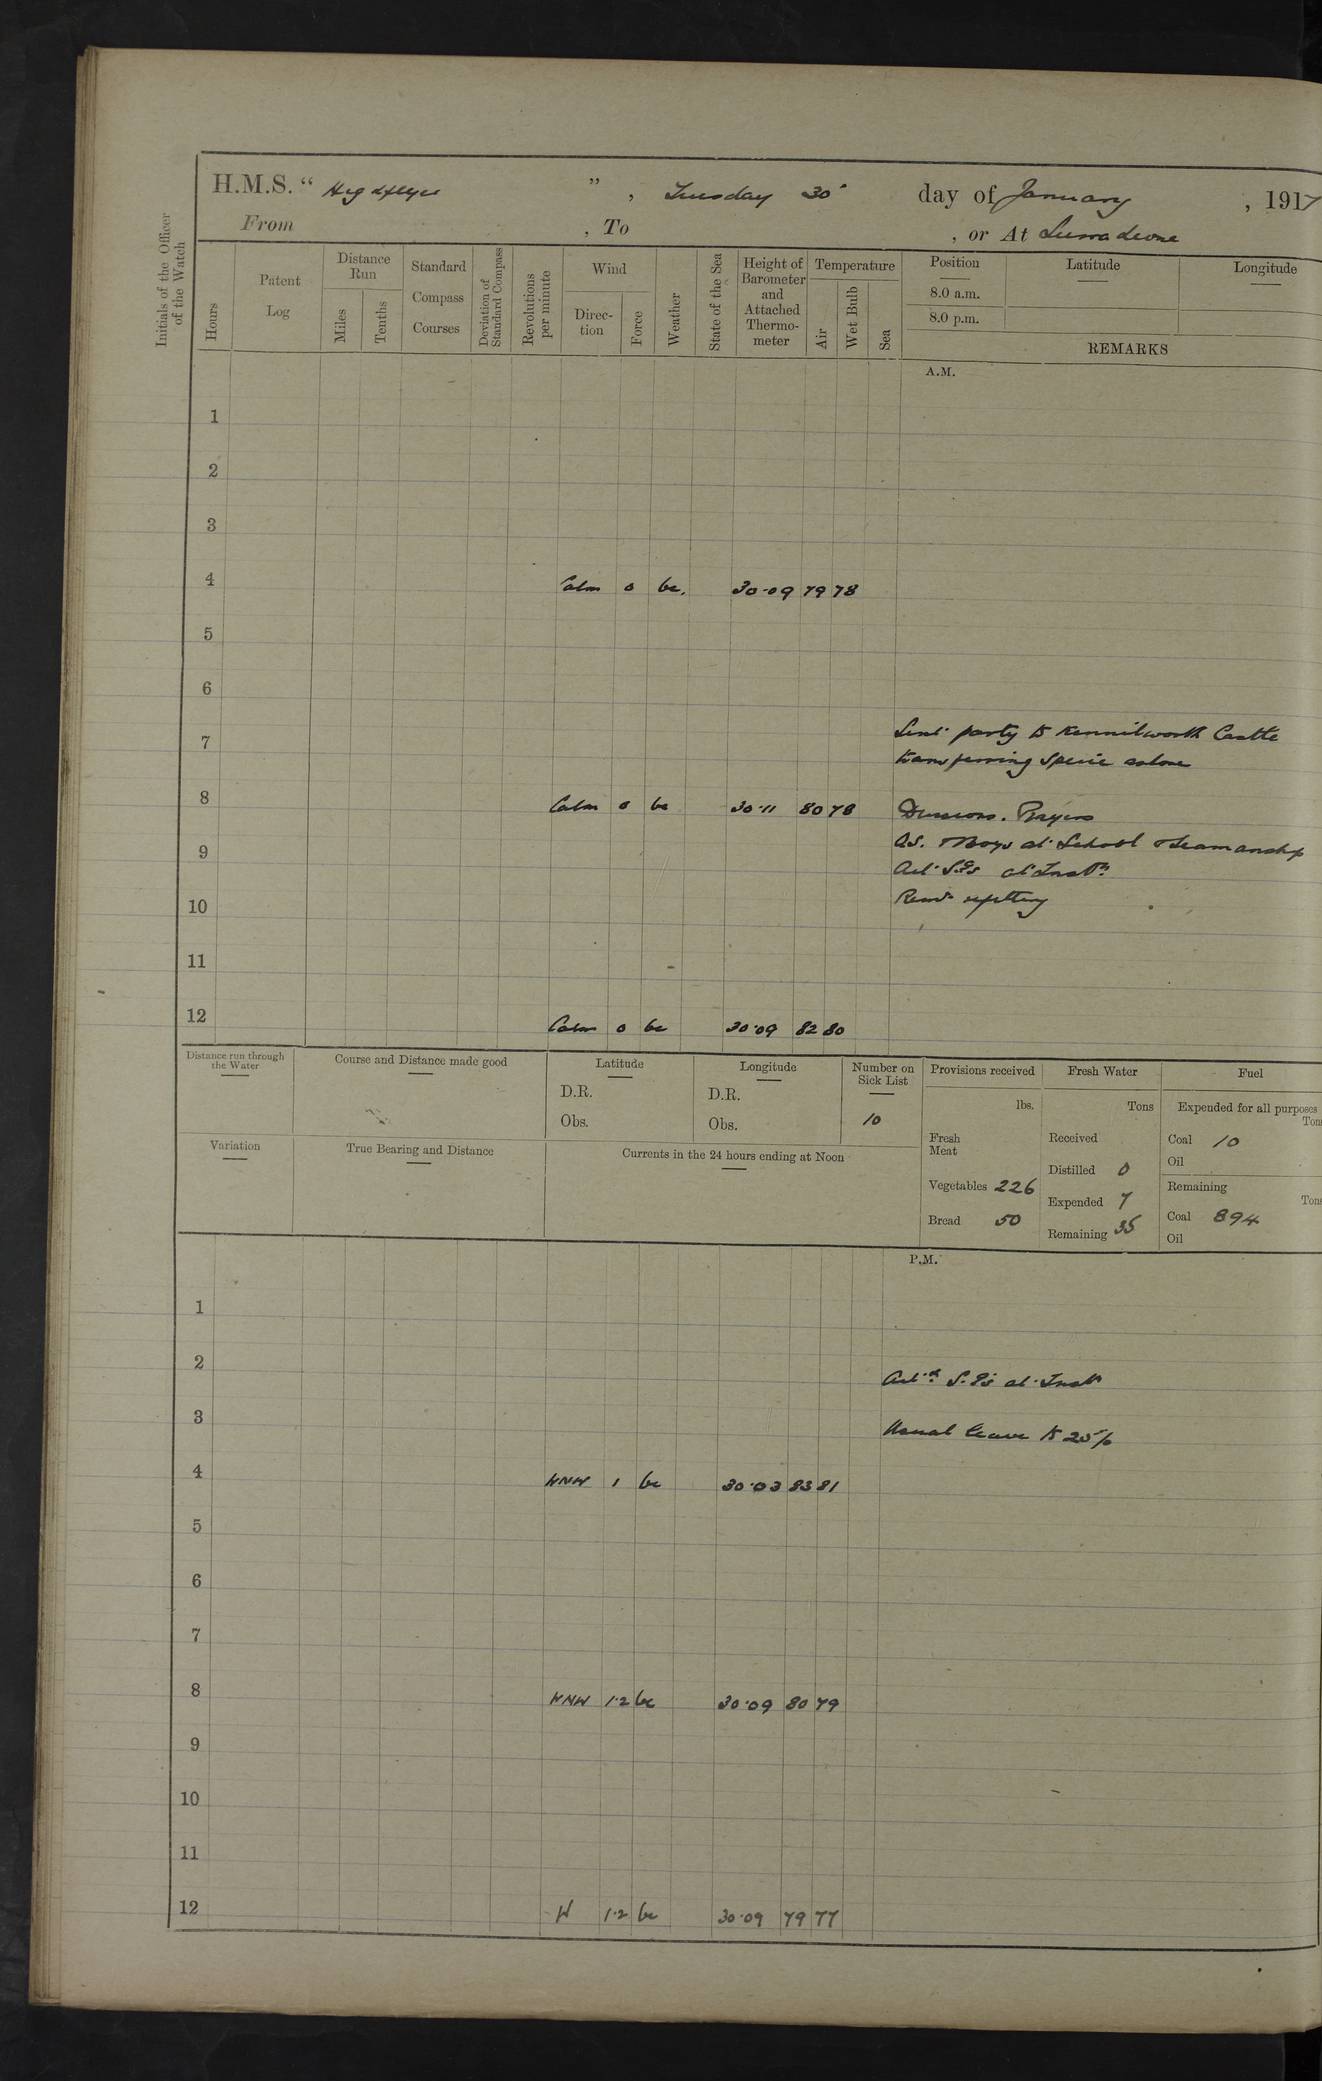 H.M.S. " Highflyer ", Tuesday 30th day of January, 1917
From , To , or At Sierra Leone
Initials of the Officer of the Watch
Hours
Patent Log
Distance Run
Miles
Tenths
Standard Compass Courses
Deviation of Standard Compass
Revolutions per minute
Wind
Direction
Force
Weather
State of the Sea
Height of Barometer and Attached Thermometer
Temperature
Air
Wet Bulb
Sea
Position
8.0 a.m.
8.0 p.m.
Latitude
Longitude
REMARKS
A.M.
1
2
3
4 Calm 0 bc. 30.09 79 78
5
6
7 Sent party to Kennilworth Castle
transferring Specie ashore
8 Calm 0 bc 30.11 80 78 Divisions. Prayers
9 O.S. & Boys at School & Seamanship
at Instn.
10 Remr refitting
11
12 Calm 0 bc 30.09 82 80
Distance run through the Water
Course and Distance made good
Latitude
D.R.
Obs.
Longitude
D.R.
Obs.
Number on Sick List
10
Variation
True Bearing and Distance
Currents in the 24 hours ending at Noon
Provisions received
lbs.
Fresh Meat
Vegetables 226
Bread 50
Fresh Water
Tons
Received
Distilled 0
Expended 7
Remaining 35
Fuel
Expended for all purposes
Tons
Coal 10
Oil
Remaining
Tons
Coal 894
Oil
P.M.
1
2 at Instn
3 Usual leave to 25%
4 WNW 1 bc 30.03 83 81
5
6
7
8 WNW 1.2 bc 30.09 80 79
9
10
11
12 W 1.2 bc 30.09 79 77